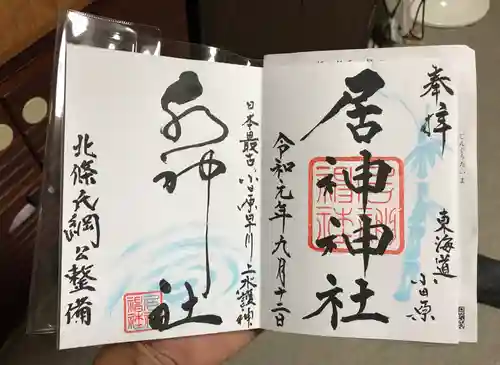 奉拝
東海道
小田原
居神神社
令和元年九月十二日
日本最古小田原早川上水護神
水神社
北條氏綱公整備